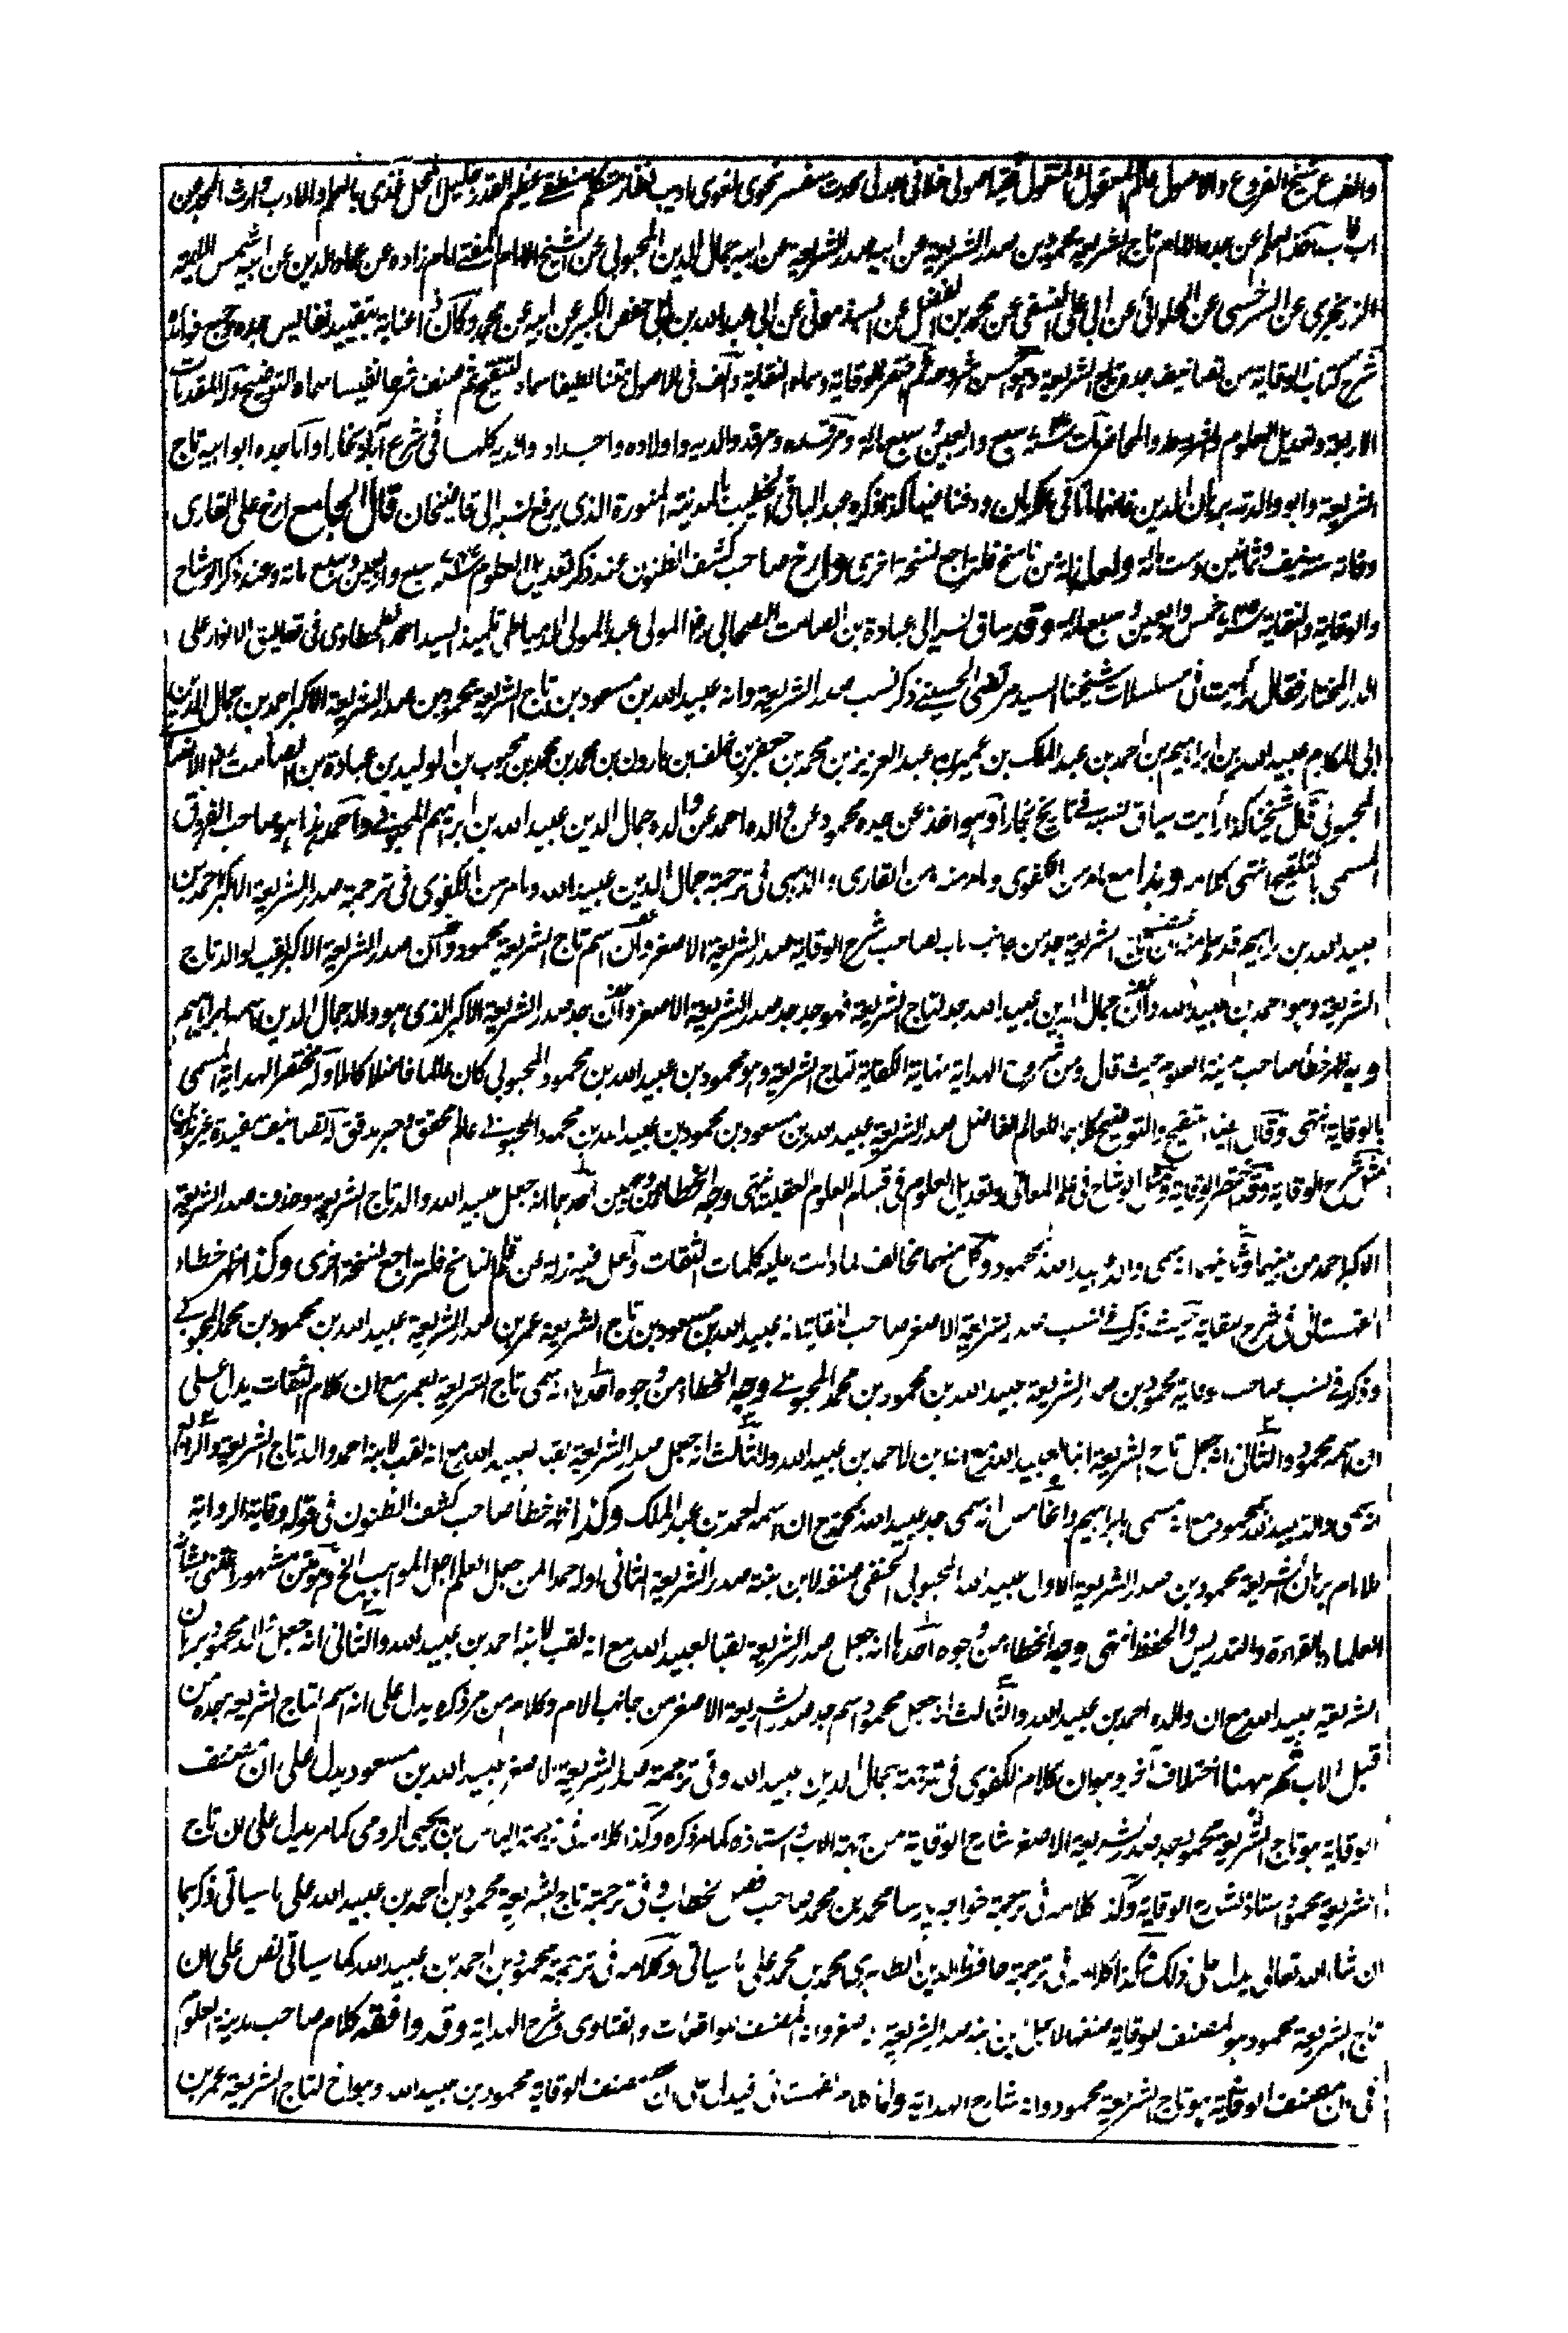 والفرع شيخ الفروع والاصول عالم المعقول والمنقول فقيه اصولى خلافى جدلى محدث مفسر نحوى لغوى اديب نظار متكلم منطقى عظيم القدر جليل المحل غذى بالعلم والادب وارث المجد عن
اب فاب اخذ العلم عن جده الامام تاج الشريعة محمود بن صدر الشريعة عن ابيه صدر الشريعة عن ابيه جمال الدين المحبوبى عن الشيخ الامام المفتى امام زاده عن عماد الدين عن ابيه شمس الائمة
الزرنجرى عن السرخسى عن الحلوائى عن ابى على النسفى عن محمد بن الفضل عن السبذمونى عن ابى عبد الله بن ابى حفص الكبير عن ابيه عن محمد وكان ذا عناية بتقييد نفائس جده وجمع فوائده
شرح كتاب الوقاية من تصانيف جده تاج الشريعة وهو احسن شروحه ثم اختصر الوقاية وسماه النقاية والف فى الاصول متنا لطيفا سماه التنقيح ثم صنف شرحا نفيسا سماه التوضيح وله المقدمات
الاربعة وتعديل العلوم والشروط والمحاضر مات سنة سبع واربعين وسبع مائة ومرقده ومرقد والديه واولاده واجداد والديه كلها فى شرع آباد بخارا واما جده ابو ابيه تاج
الشريعة وابو والدته برهان الدين فانهما ماتا فى كرمان ودفنا فيها كذا ذكره عبد الباقى الخطيب بالمدينة المنورة الذى يرفع نسبه الى قاضيخان قال الجامع ارخ على القارى
وفاته سنة نيف وثمانين وست مائة ولعله زلة من ناسخ فلتراجع نسخة اخرى وارخ صاحب كشف الظنون عند ذكر تعديل العلوم سنة سبع واربعين وسبع مائة وعند ذكر الوشاح
والوقاية والنقاية سنة خمس واربعين وسبع مائة وقد ساق نسبه الى عبادة بن الصامت الصحابى رض المولى عبد المولى الدمياطى تلميذ السيد احمد الطحطاوى فى تعاليق الانوار على
الدر المختار فقال رأيت فى مسلسلات شيخنا السيد مرتضى الحسينى ذكر نسب صدر الشريعة وانه عبيد الله بن مسعود بن تاج الشريعة محمود بن صدر الشريعة الاكبر احمد بن جمال الدين
ابى المكارم عبيد الله بن ابراهيم بن احمد بن عبد الملك بن عمير بن عبد العزيز بن محمد بن جعفر بن خلف بن هارون بن محمد بن محمد بن محبوب بن الوليد بن عبادة بن الصامت رض الانصارى
المحبوبى قال شيخنا كذا رأيت سياق نسبه فى تاريخ بخارا وهو اخذ عن جده محمود عن والده احمد عن والده جمال الدين عبيد الله بن ابراهيم المحبوبى واحمد هذا هو صاحب الفروق
المسمى بالتلقيح انتهى كلامه وهذا مع ما مر من الكفوى وما مر منه ومن القارى والذهبى فى ترجمة جمال الدين عبيد الله وما مر من الكفوى فى ترجمة صدر الشريعة الاكبر احمد بن
عبيد الله بن ابراهيم قد علم منه ان تاج الشريعة جد من جانب اب لصاحب شرح الوقاية صدر الشريعة الاصغر وان اسم تاج الشريعة محمود وان صدر الشريعة الاكبر لقب لوالد تاج
الشريعة وهو احمد بن عبيد الله وان جمال الدين عبيد الله جد لتاج الشريعة فهو جد جد صدر الشريعة الاصغر وان جد صدر الشريعة الاكبر الذى هو والد جمال الدين اسمه ابراهيم
وبه ظهر خطأ صاحب مدينة العلوم حيث قال ومن شروح الهداية نهاية الكفاية لتاج الشريعة وهو محمود بن عبيد الله بن محمود المحبوبى كان عالما فاضلا كاملا وله مختصر الهداية المسمى
بالوقاية انتهى وقال ايضا التنقيح والتوضيح كلاهما للعالم الفاضل صدر الشريعة عبيد الله بن مسعود بن محمود بن عبيد الله بن محمود المحبوبى عالم محقق وحبر مدقق له تصانيف مفيدة غير هذين
مثل شرح الوقاية وقد اختصر الوقاية ومثل الوشاح فى علم المعانى وتعديل العلوم فى اقسام العلوم العقلية انتهى وجه الخطأ من وجهين احدهما انه جعل عبيد الله والد تاج الشريعة وحذف صدر الشريعة
الاكبر احمد من بينهما وثانيهما انه سمى والد عبيد الله بمحمود وكل منهما مخالف لما دلت عليه كلمات الثقات ولعل فيه زلة من قلم الناسخ فلتراجع نسخة اخرى وكذا ظهر خطاء
القهستانى فى شرح النقاية حيث ذكر فى نسب صدر الشريعة الاصغر صاحب النقاية انه عبيد الله بن مسعود بن تاج الشريعة عمر بن صدر الشريعة عبيد الله بن محمود بن محمد المحبوبى
وذكر فى نسب صاحب الوقاية محمود بن صدر الشريعة عبيد الله بن محمود بن محمد المحبوبى وجه الخطاء من وجوه احدها انه سمى تاج الشريعة بعمر مع ان كلام الثقات يدل على
ان اسمه محمود والثانى انه جعل تاج الشريعة ابنا لعبيد الله مع انه ابن لاحمد بن عبيد الله والثالث انه جعل صدر الشريعة لقبا لعبيد الله مع انه لقب لابنه احمد والد تاج الشريعة والرابع
انه سمى والد عبيد الله بمحمود مع انه مسمى بابراهيم والخامس انه سمى جد عبيد الله بمحمد مع ان اسمه احمد بن عبد الملك وكذا ظهر خطأ صاحب كشف الظنون فى قوله وقاية الرواية
للامام برهان الشريعة محمود بن صدر الشريعة الاول عبيد الله المحبوبى الحنفى صنفه لابن بنته صدر الشريعة الثانى اوله احمد المن جعل العلم اجل المواهب الخ وهو متن مشهور اعتنى بشانه
العلماء بالقراءة والتدريس والحفظ انتهى وجه الخطاء من وجوه احدها انه جعل صدر الشريعة لقبا لعبيد الله مع انه لقب لابنه احمد بن عبيد الله والثانى انه جعل والد محمود برهان
الشريعة عبيد الله مع ان والده احمد بن عبيد الله والثالث انه جعل محمود اسم جد صدر الشريعة الاصغر من جانب الام وكلام من مر ذكره يدل على انه اسم لتاج الشريعة جده من
قبل الاب ثم ههنا اختلاف آخر وهو ان كلام الكفوى فى ترجمة جمال الدين عبيد الله وفى ترجمة صدر الشريعة الاصغر عبيد الله بن مسعود يدل على ان مصنف
الوقاية هو تاج الشريعة محمود جد صدر الشريعة الاصغر شارح الوقاية من جهة الاب واستاذه كما مر ذكره وكذا كلامه فى ترجمة الياس بن يحيى الرومى كما مر يدل على ان تاج
الشريعة محمود استاذ لشارح الوقاية وكذا كلامه فى ترجمة خواجه پارسا محمد بن محمد صاحب فصل الخطاب وفى ترجمة تاج الشريعة محمود بن احمد بن عبيد الله على ما سياتى ذكرهما
ان شاء الله تعالى يدل على ذلك وكذا كلامه فى ترجمة حافظ الدين الطاهرى محمد بن محمد على ما سياتى وكلامه فى ترجمة محمود بن احمد بن عبيد الله كما سياتى نص على ان
تاج الشريعة محمود هو المصنف للوقاية صنفها لاجل ابن ابنه صدر الشريعة الاصغر وانه المصنف للواقعات والفتاوى وشرح الهداية وقد وافقه كلام صاحب مدينة العلوم
فى ان مصنف الوقاية هو تاج الشريعة محمود وانه شارح الهداية واما كلام القهستانى فيدل على ان مصنف الوقاية محمود بن عبيد الله وهو اخ لتاج الشريعة عمر بن